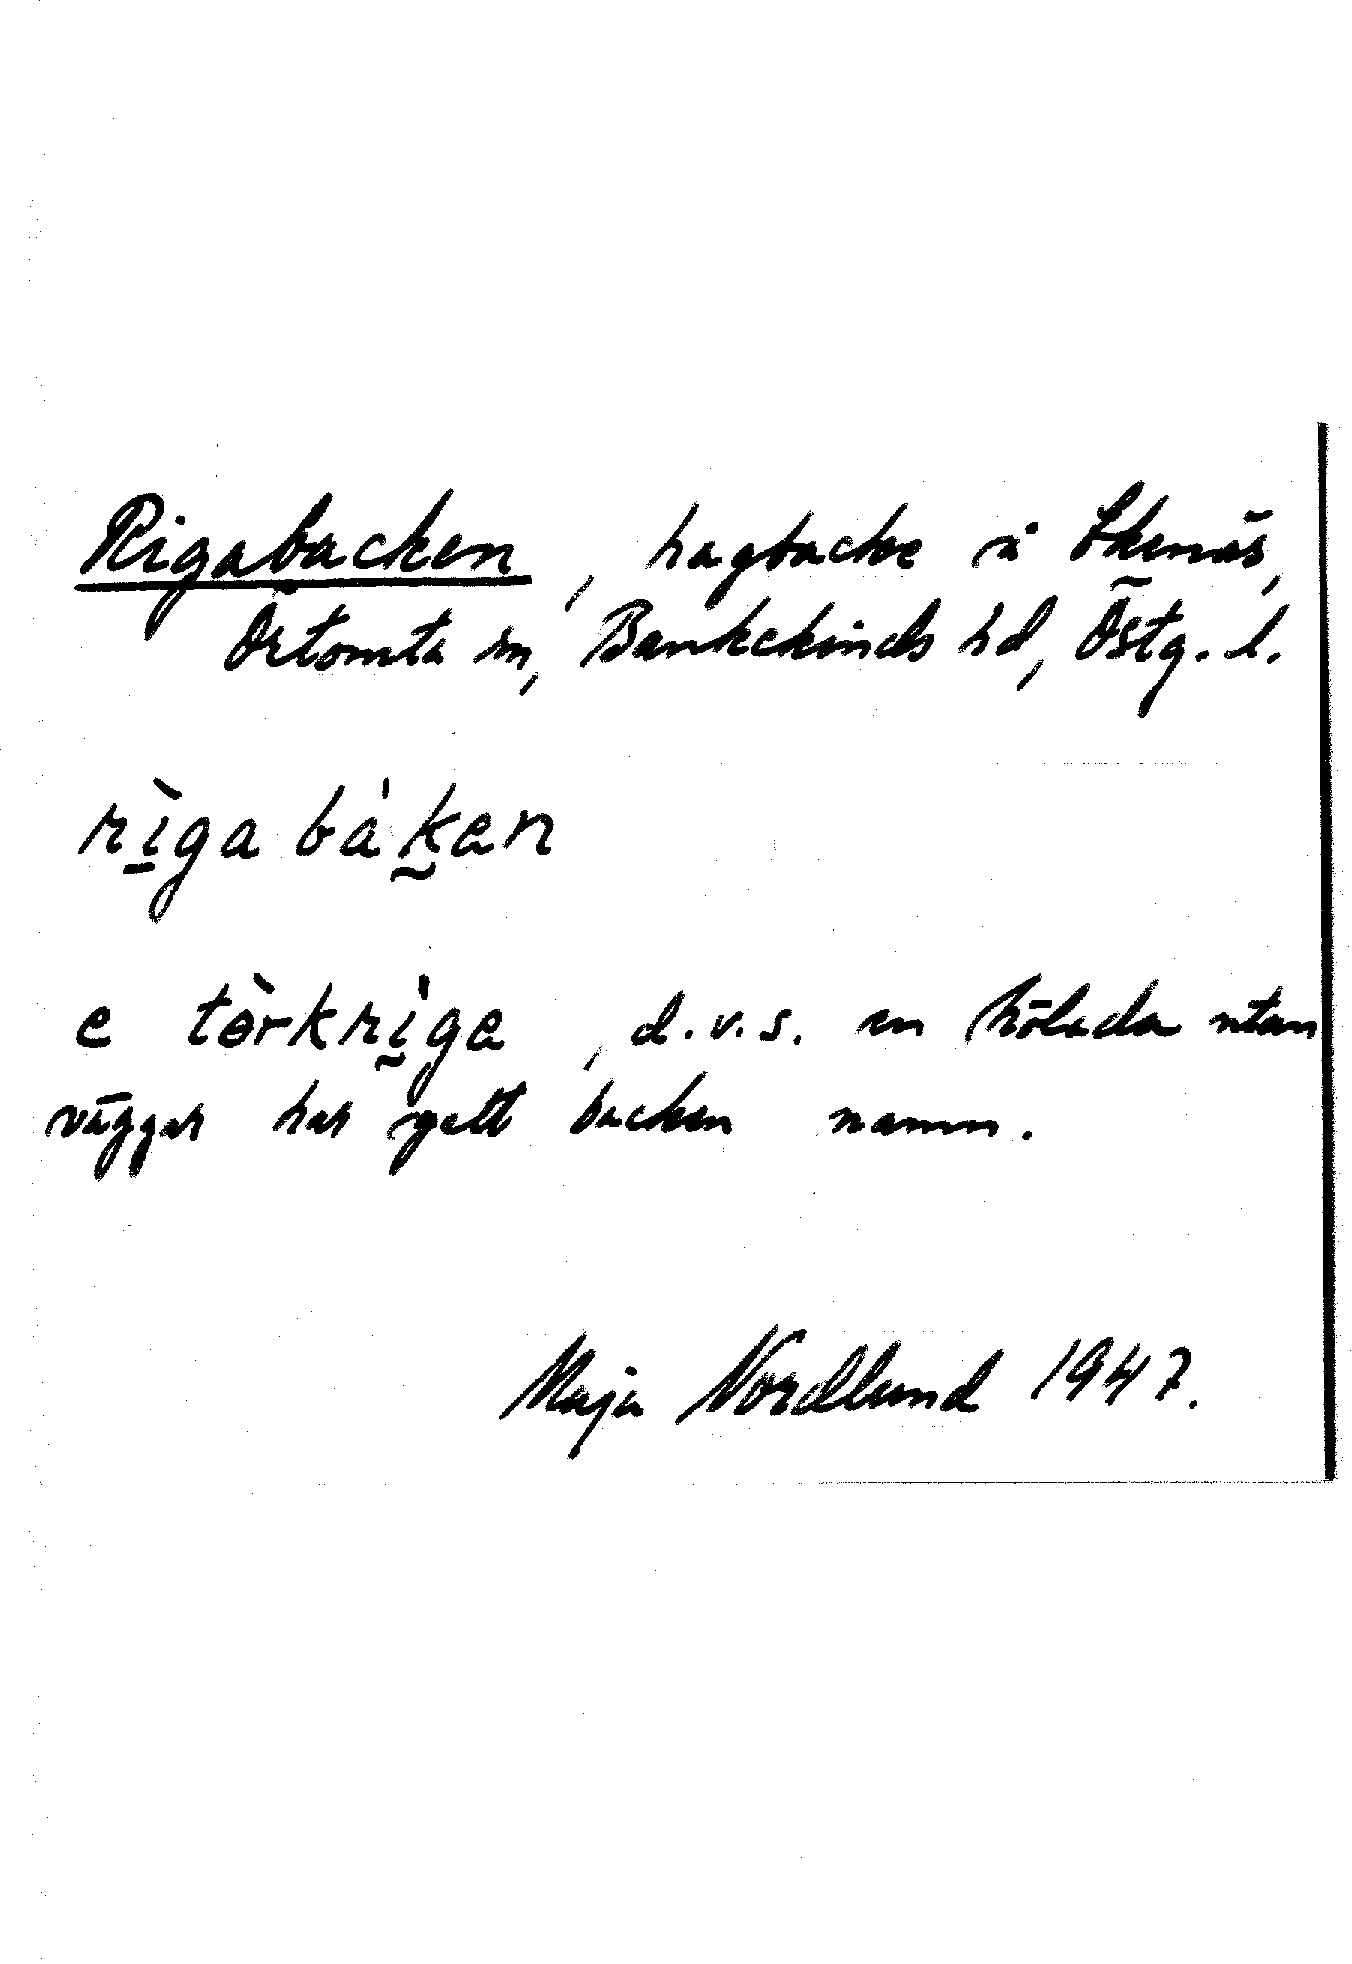 Rigabacken, hagbacke å Skenäs,
Örtomta sn, Bankekinds hd, Östg. l.
rì̱ga bàk̰en
e tɵ̀rkrḭ̀ge, d.v.s. en hölada utan
väggar har gett backen namn.
Maja Nordlund 1947.